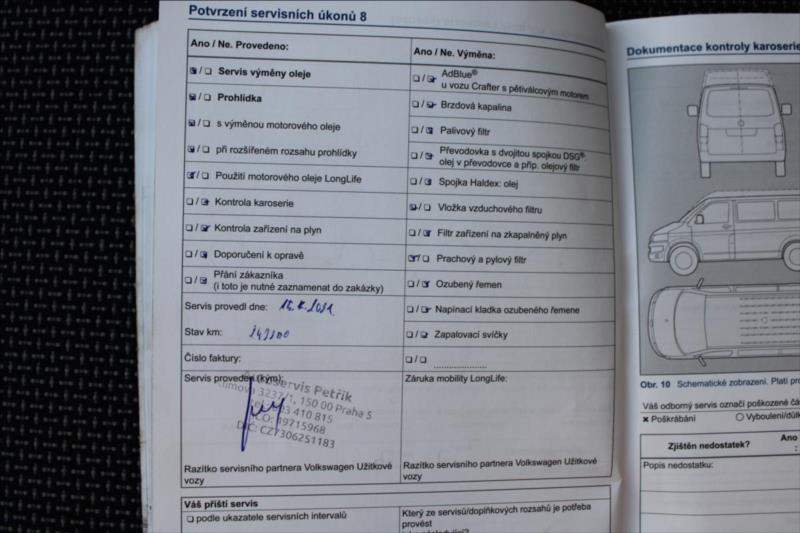 Potvrzení servisních úkonů 8
Ano / Ne. Provedeno:
❏ / ❏ Servis výměny oleje
❏ / ❏ Prohlídka
❏ / ❏ s výměnou motorového oleje
❏ / ❏ při rozšířeném rozsahu prohlídky
❏ / ❏ Použití motorového oleje LongLife
❏ / ❏ Kontrola karoserie
❏ / ❏ Kontrola zařízení na plyn
❏ / ❏ Doporučení k opravě
❏ / ❏ Přání zákazníka
(i toto je nutné zaznamenat do zakázky)
Servis provedl dne:
Stav km:
Číslo faktury:
Servis provedl (kým):
servis Petřík
3237/1, 150 00 Praha 5
410 815
DIČ: CZ7306251183
Razítko servisního partnera Volkswagen Užitkové
vozy
Ano / Ne. Výměna:
❏ / ❏ AdBlue®
u vozu Crafter s pětiválcovým motorem
❏ / ❏ Brzdová kapalina
❏ / ❏ Palivový filtr
❏ / ❏ Převodovka s dvojitou spojkou DSG®:
olej v převodovce a příp. olejový filtr
❏ / ❏ Spojka Haldex: olej
❏ / ❏ Vložka vzduchového filtru
❏ / ❏ Filtr zařízení na zkapalněný plyn
❏ / ❏ Prachový a pylový filtr
❏ / ❏ Ozubený řemen
❏ / ❏ Napínací kladka ozubeného řemene
❏ / ❏ Zapalovací svíčky
❏ / ❏ ....................
Záruka mobility LongLife:
Razítko servisního partnera Volkswagen Užitkové
vozy
Váš příští servis
❏ podle ukazatele servisních intervalů
Který ze servisů/doplňkových rozsahů je potřeba
provést
Dokumentace kontroly karoserie
Obr. 10 Schematické zobrazení. Platí
Váš odborný servis označí poškozené
✖ Poškrábání
○ Vyboulení/
Zjištěn nedostatek? Ano
Popis nedostatku: